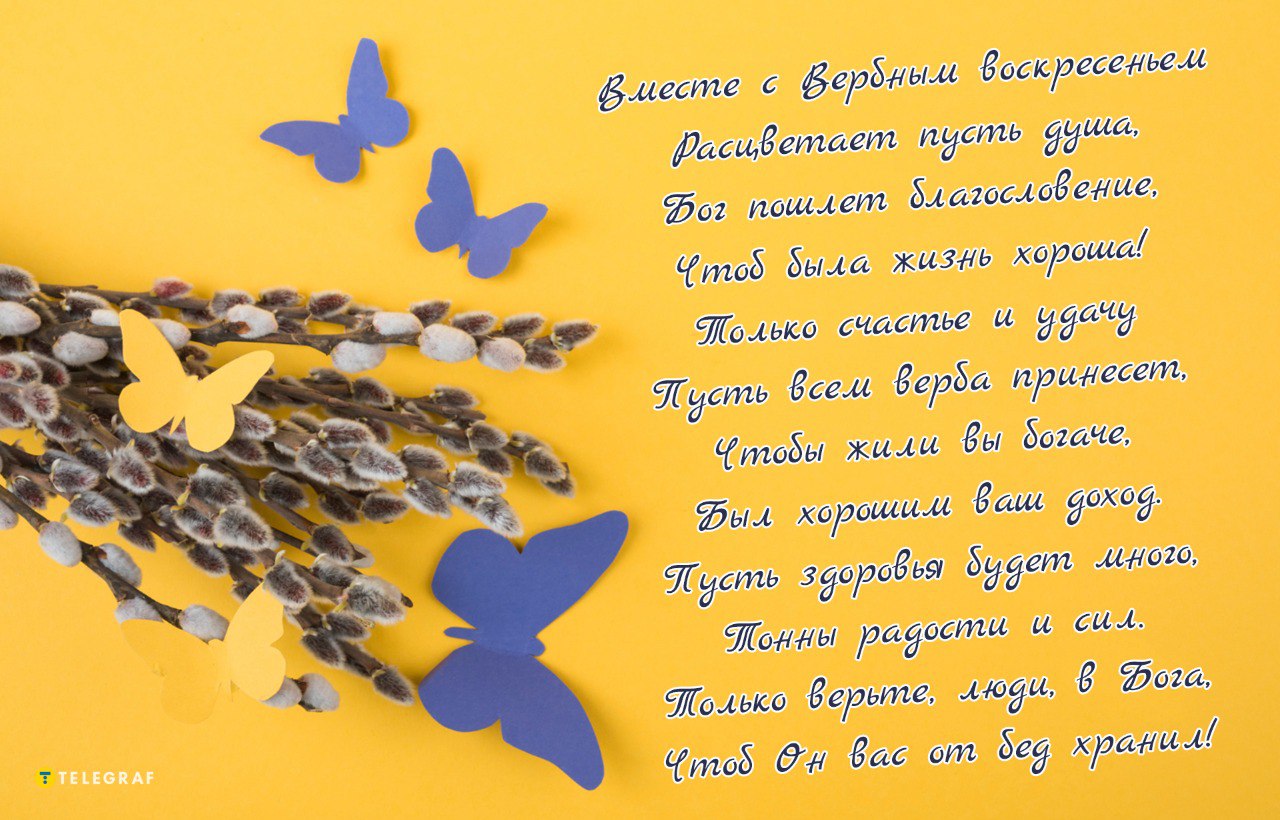 Вместе с Вербным воскресеньем
Расцветает пусть душа,
Бог пошлет благословение,
Чтоб была жизнь хороша!
Только счастье и удачу
Пусть всем верба принесет,
Чтобы жили вы богаче,
Был хорошим ваш доход.
Пусть здоровья будет много,
Тонны радости и сил.
Только верьте, люди, в Бога,
Чтоб Он вас от бед хранил!
TELEGRAF